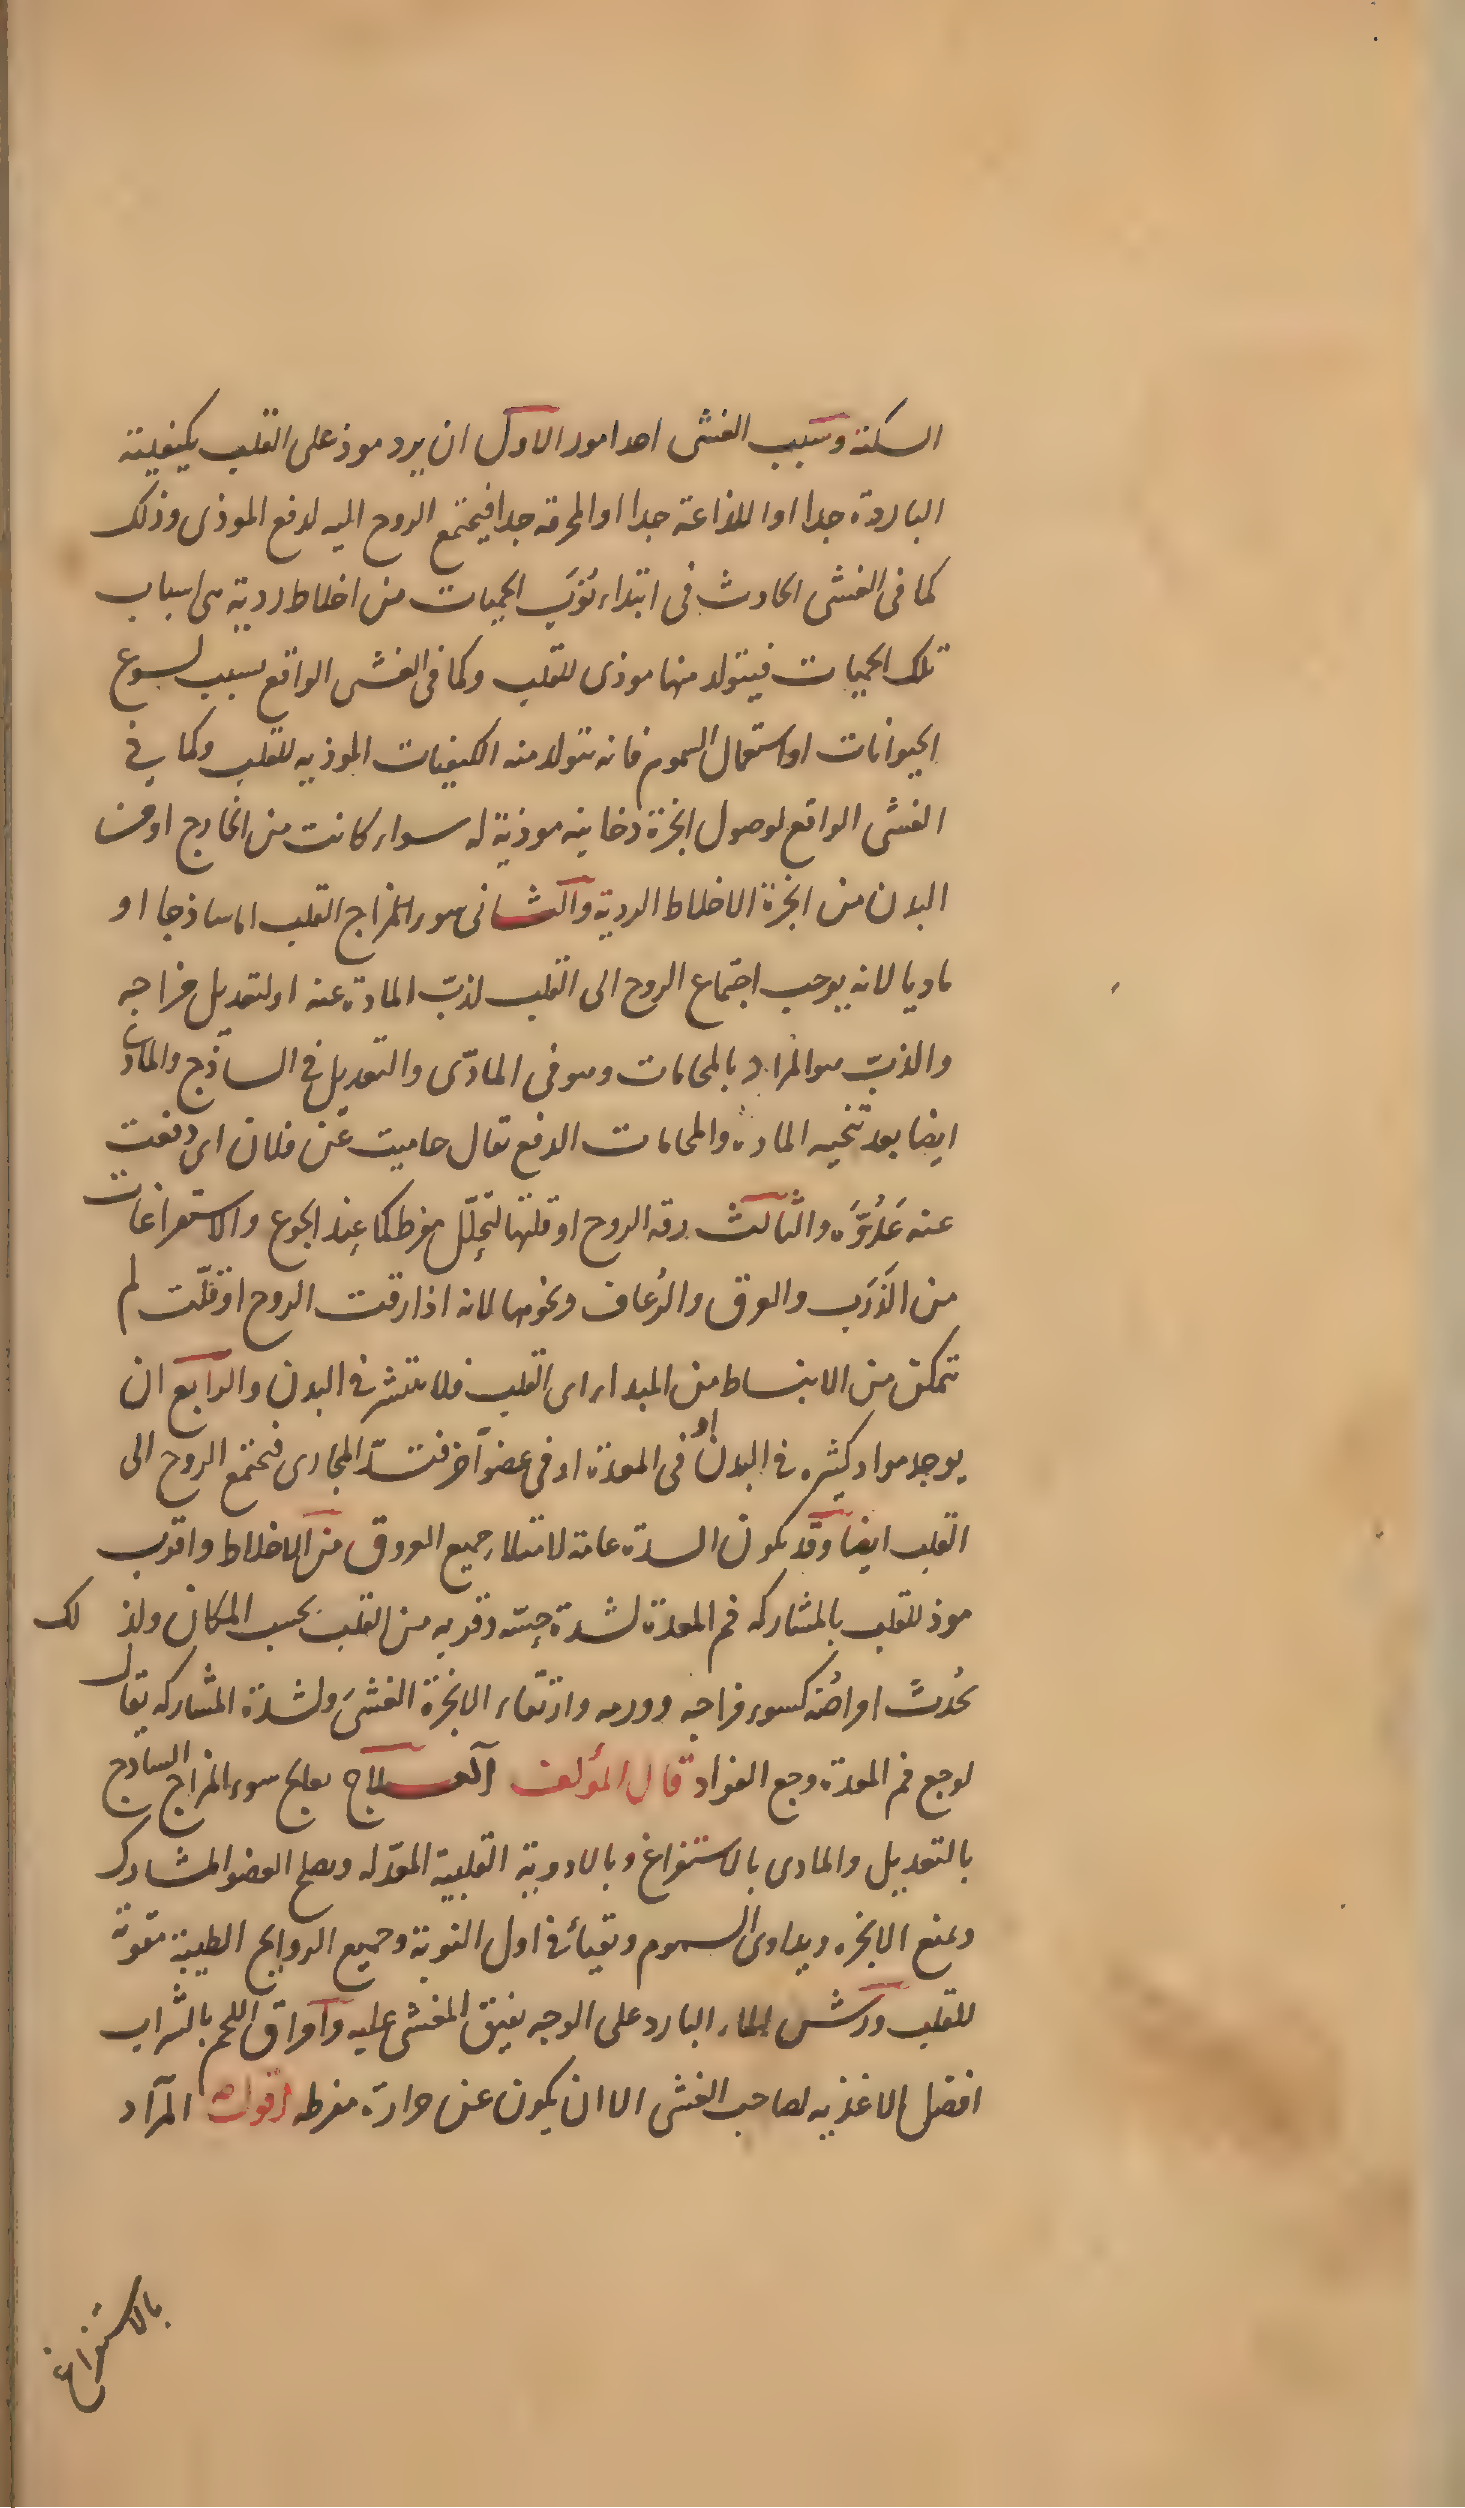 السكتة وسبب الغشى احد امور الاول ان يرد موذ على القلب بكيفيته
الباردة جدا او اللذاعة جدا او المحرقه جدا فيجتمع الروح اليه لدفع الموذى وذلك
كما فى الغشى الحادث فى ابتداء نُوَب الحميات من اخلاط ردية هى اسباب
تلك الحميات فيتولد منها موذى للقلب وكما فى الغشى الواقع بسبب لسوع
الحيوانات او استعمال السموم فانه تتولد منه الكيفيات الموذيه للقلب وكما فى
الغشى الواقع لوصول ابخرة دخانيه موذية له سواء كانت من الخارج او من
البدن من ابخرة الاخلاط الردية والثانى سوء المزاج القلب اما ساذجا او
ماديا لانه يوجب اجتماع الروح الى القلب لذبّ المادة عنه او لتعديل مزاجه
والذبّ هو المراد بالمحامات وهو فى المادّى والتعديل فى الساذج والمادى
ايضا بعد تنحيه المادة والمحامات الدفع تقال حاميت عَن فلان اى دفعت
عنه عَدُوَّه والثالث رقه الروح او قلتها لتحلّل مفرط كما عِند الجوع والاستفراغات
من الذَرَب والعرق والرُعاف ونحوها لانه اذا رقت الروح او قلّت لم
تتمكن من الانبساط من المبداء اى القلب فلا تنتشر فى البدن والرابع ان
يوجد مواد كثيره فى البدن او فى المعدة او فى عضو آخر فتسدّ المجارى فتجتمع الروح الى
القلب ايضاً وقد يكون السدة عامة لامتلاء جميع العروق من الاخلاط واقرب
موذ للقلب بالمشاركه فم المعدة لشدة حِسّه وقربه من القلب بحسب المكان ولذلك
تُحدث امراضُه كسوء مزاجه وورمه وارتقاء الابخرة الغشىَ ولشدة المشاركه يقال
لوجع فم المعدة وجع الفواد قال المؤلف العلاج يعالج سوء المزاج الساذج
بالتعديل والمادى بالاستفراغ وبالادوية القلبية المعدّله ويصلح العضو المشارك
ويمنع الابخره ويداوى السموم ويقيأ فى اول النوبة وجميع الروايح الطيبة مقوية
للقلب ورش الماء البارد على الوجه يفيق المغشى عليه وامراق اللحم بالشراب
افضل الاغذيه لصاحب الغشى الا ان يكون عن حرارة مفرطه اقول المراد
بالاستفراغ